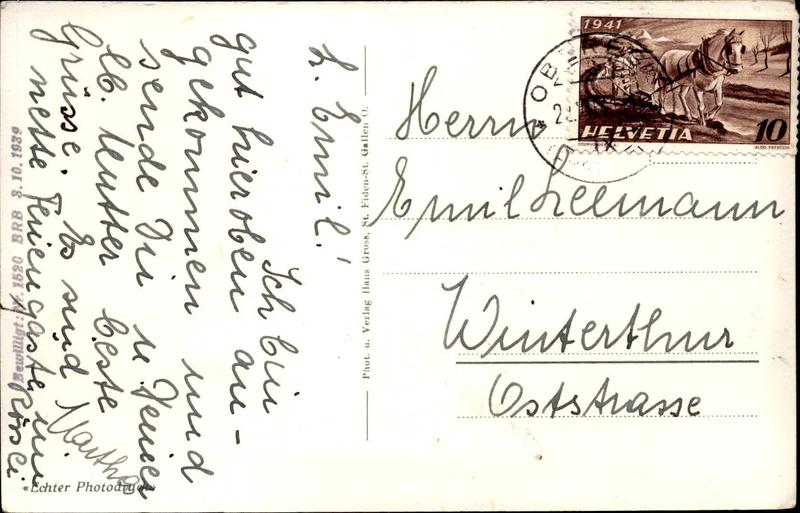 L. Emil!
Ich bin
gut hieroben an-
gekommen und
sende Dir u. Deiner
lb. Mutter beste
Grüsse. Es sind
nette Feriengäste hier
Martha
Rösli
Bewilligt: Nr. 1520 BRB 3.10.1939
«Echter Photodruck»
Phot. u. Verlag Hans Gross, St. Fiden-St. Gallen O.
1941
HELVETIA
10
Herrn
Emil Leemann
Winterthur
Oststrasse